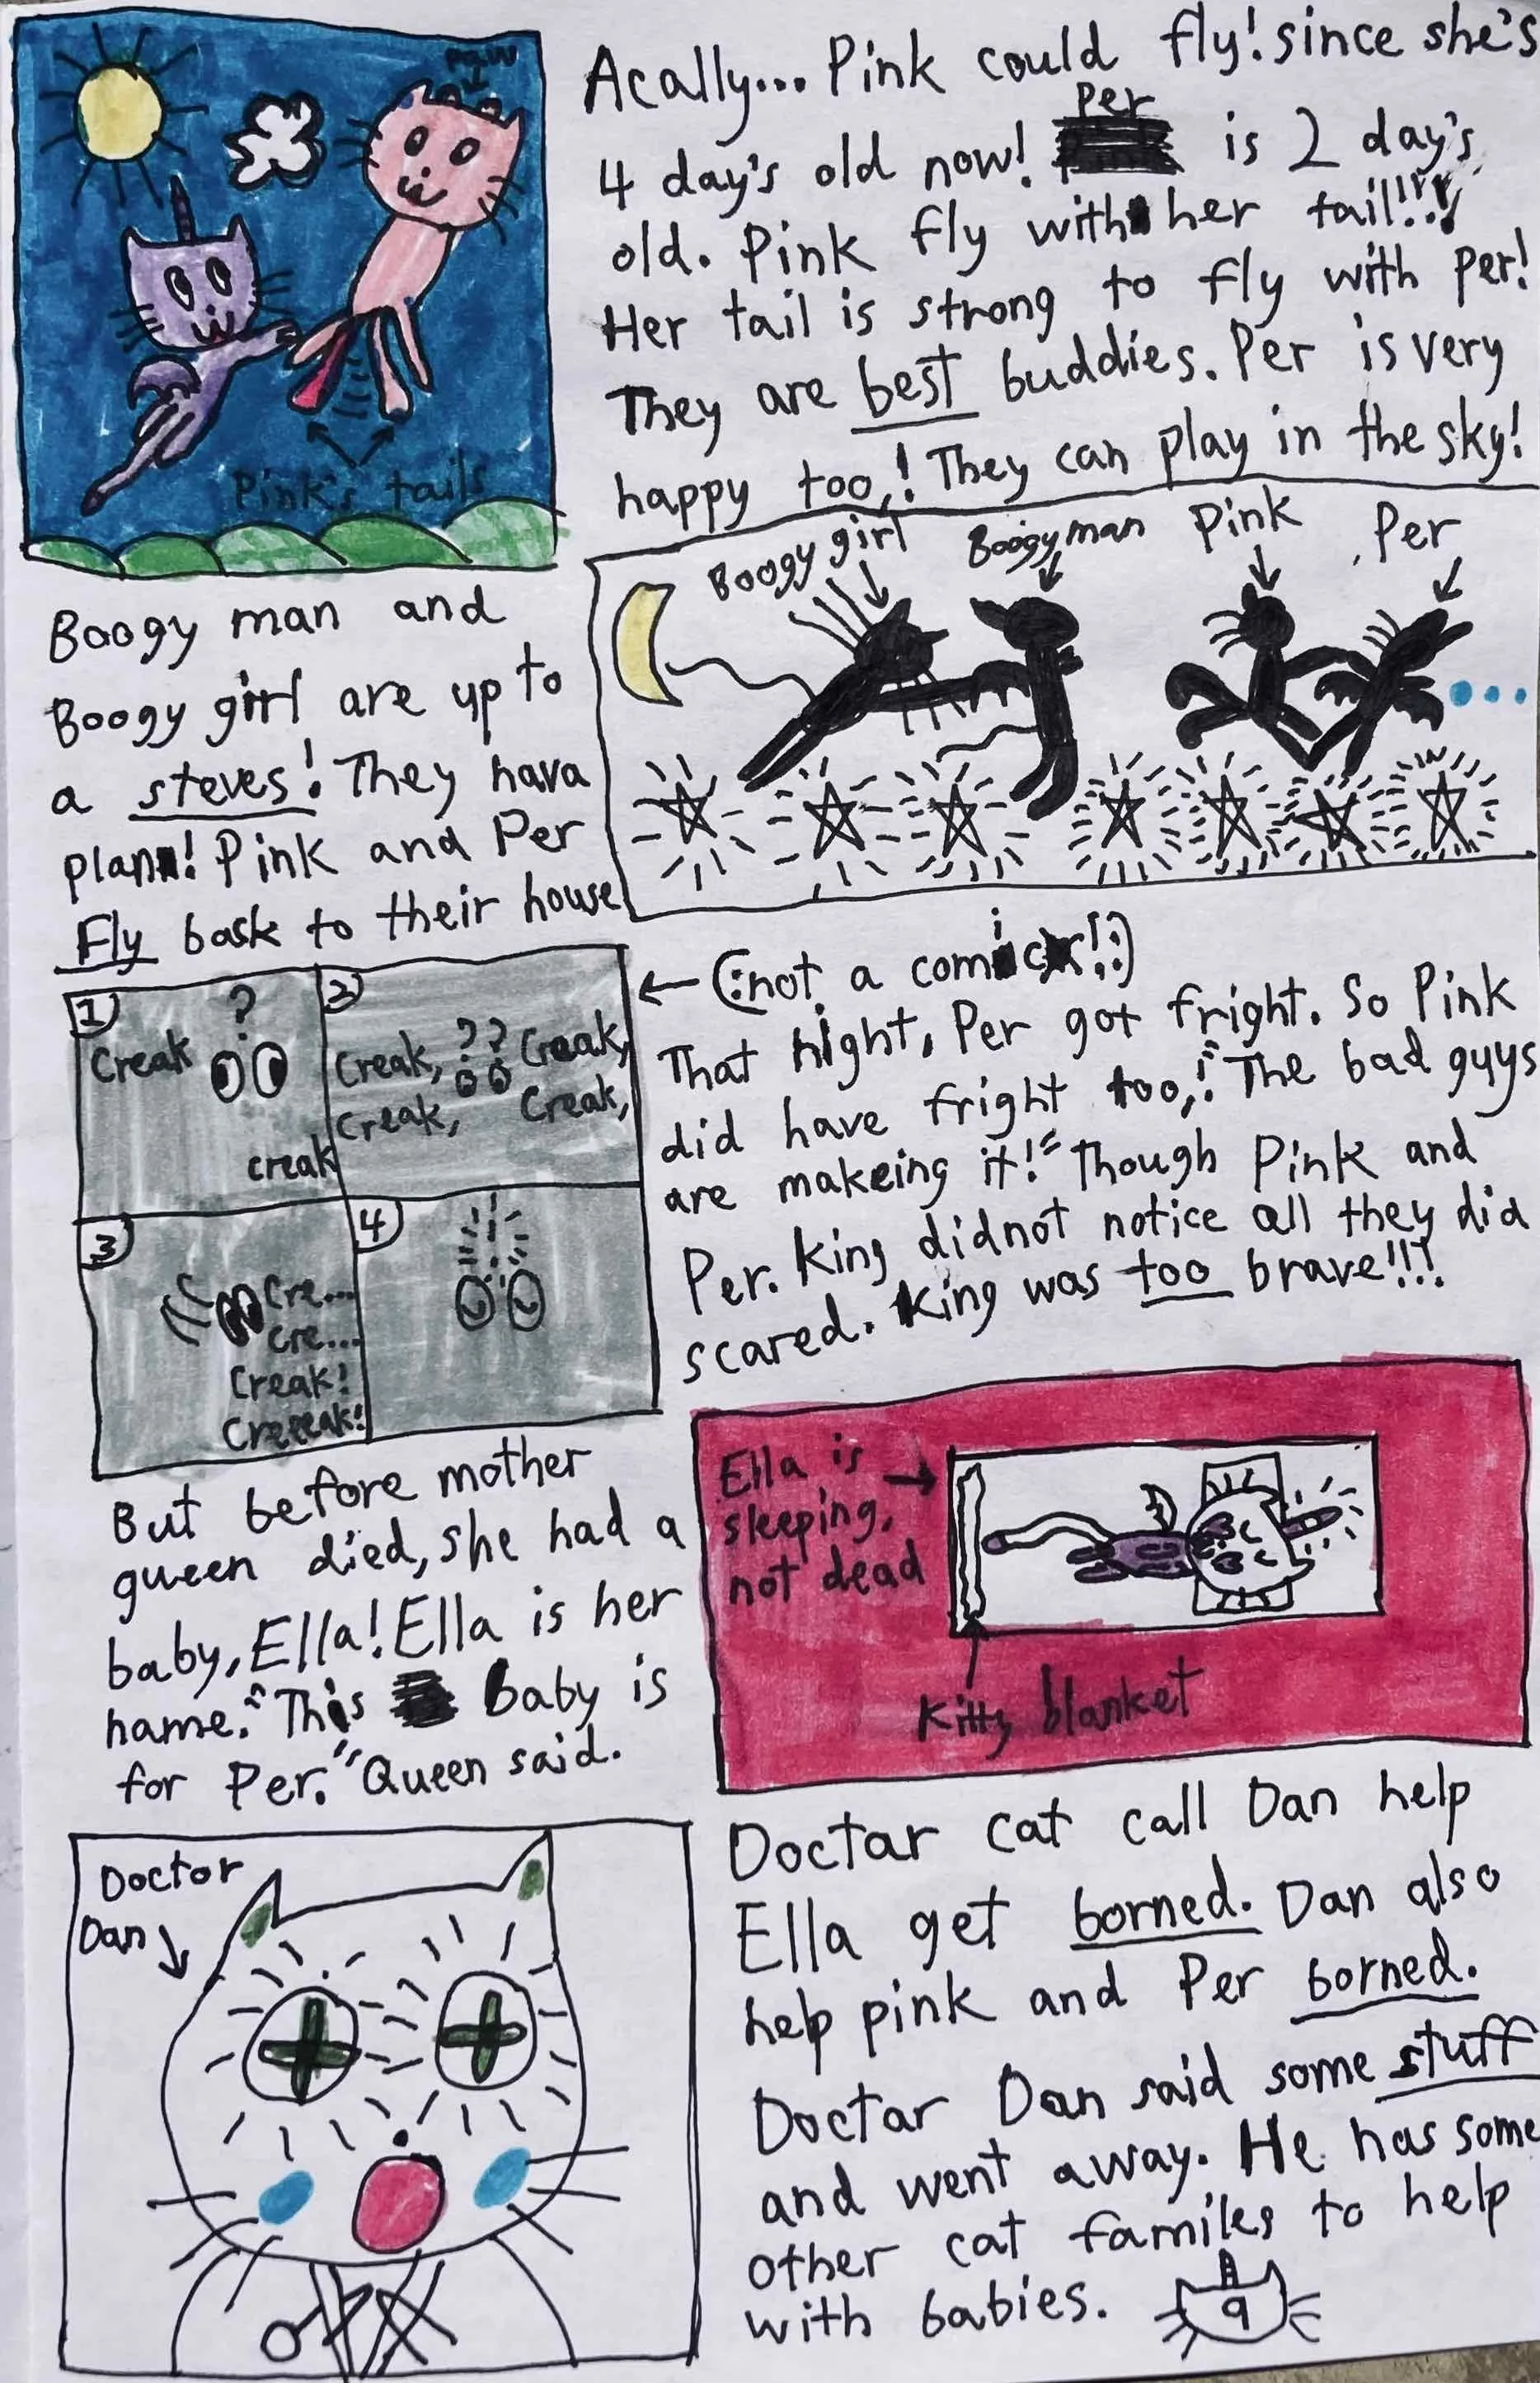 paw
Pink's tails
Acally... Pink could fly! since she's
4 day's old now! Per is 2 day's
old. Pink fly with her tail!!!!
Her tail is strong to fly with per!
They are best buddies. Per is very
happy too,! They can play in the sky!
Boogy girl
Boogyman
Pink
Per
Boogy man and
Boogy girl are up to
a steves! They hava
plan! Pink and Per
Fly bask to their house
1
Creak
?
creak
2
Creak, ?? Creak,
Creak, Creak,
3
Cre...
Cre...
Creak!
Creeeak!
4
← (:not a comic!:)
That night, Per got fright. So Pink
did have fright too,! "The bad guys
are makeing it!" Though Pink and
Per. King didnot notice all they did
scared. King was too brave!!!
But before mother
queen died, she had a
baby, Ella! Ella is her
name. "This baby is
for Per." Queen said.
Ella is
sleeping,
not dead
Kitty blanket
Doctor
Dan
Doctar cat call Dan help
Ella get borned. Dan also
help pink and Per borned.
Doctar Dan said some stuff
and went away. He has some
other cat familes to help
with babies.
9